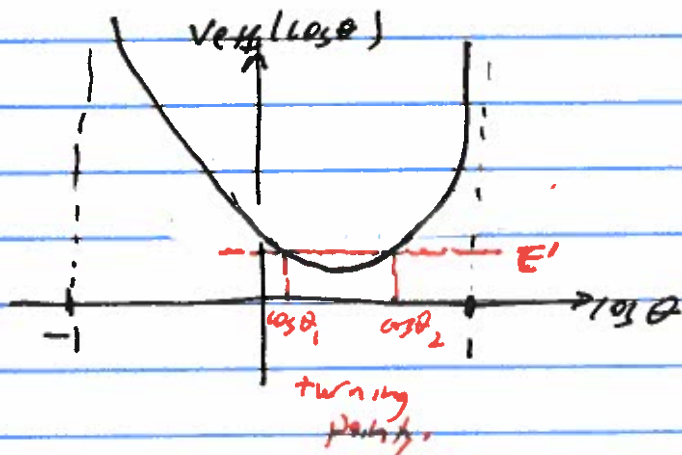 Veff(cosθ)
E'
cosθ
-1
cosθ₁
cosθ₂
1
turning
points.